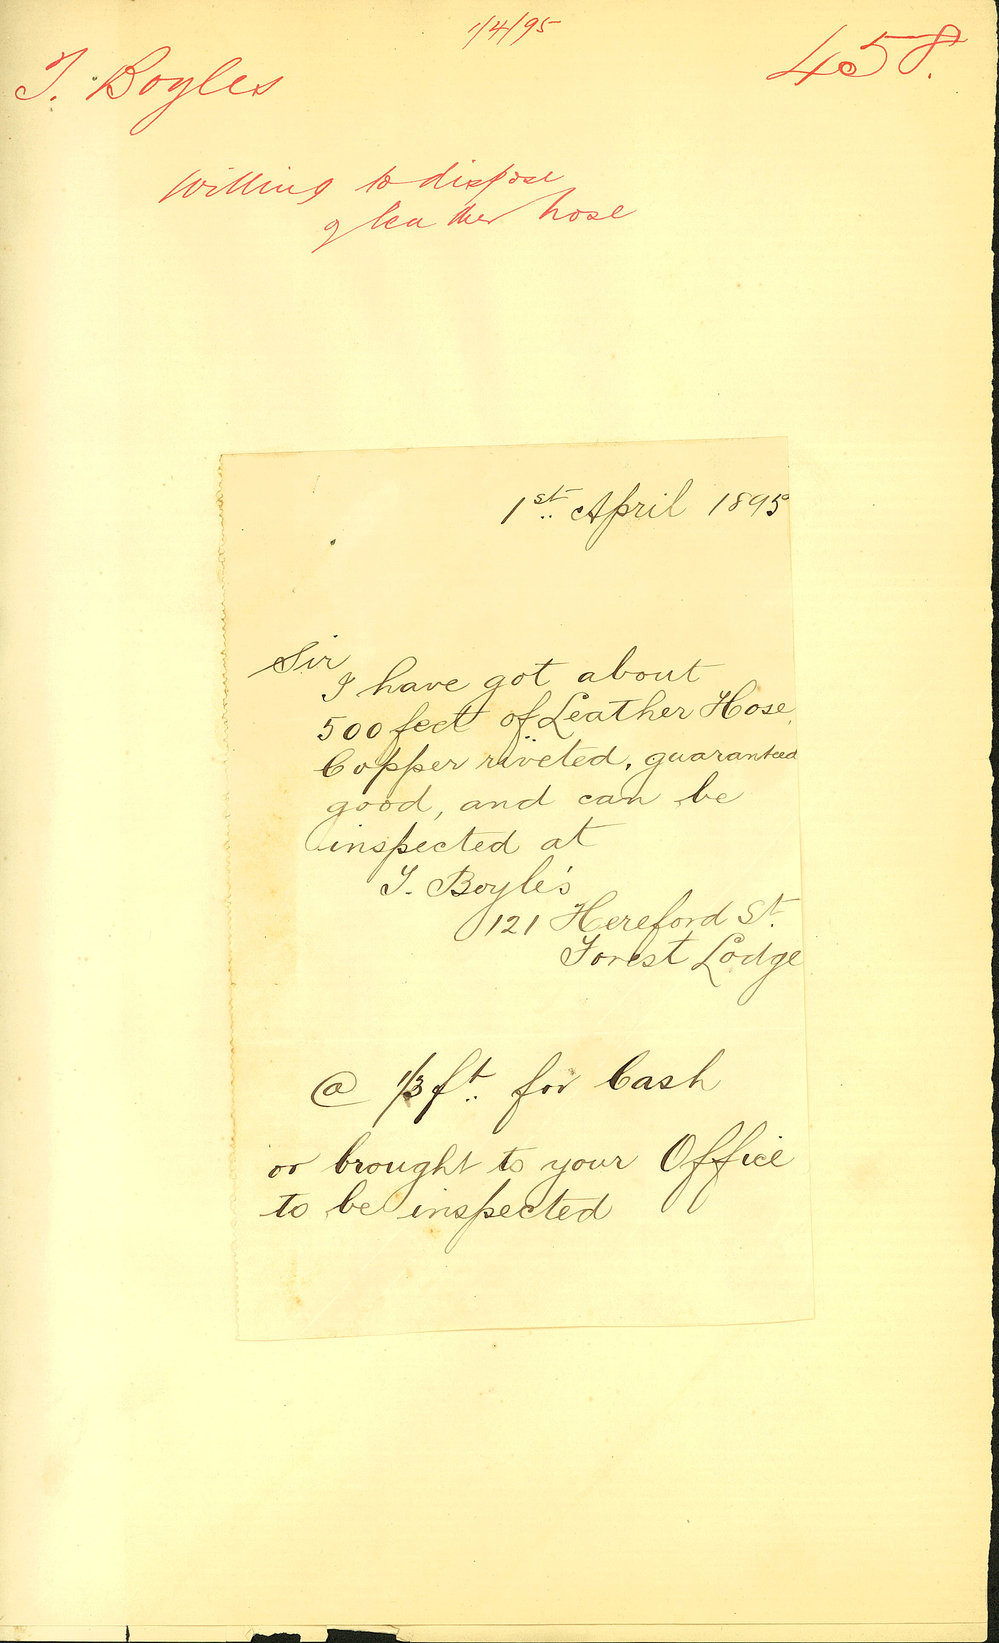 1/4/95
T. Boyles
458.
Willing to dispose
of leather hose
1st April 1895
Sir
I have got about
500 feet of Leather Hose,
Copper riveted, guaranteed
good, and can be
inspected at
T. Boyle's
121 Hereford St.
Forest Lodge
@ 1/3 ft. for Cash
or brought to your Office
to be inspected